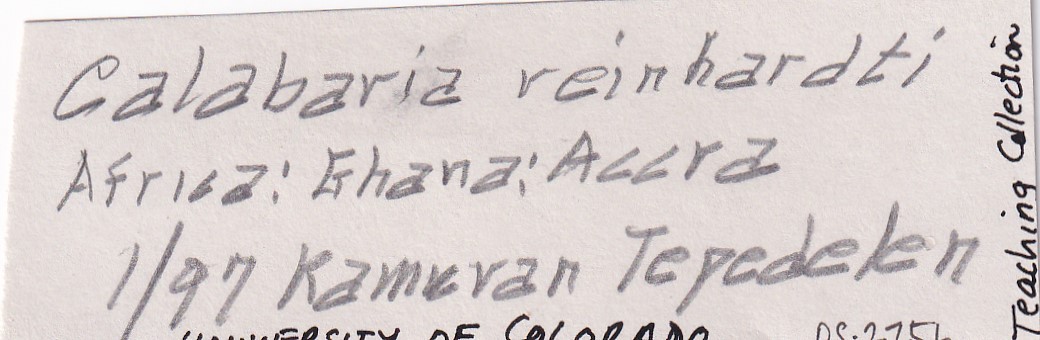 Calabaria reinhardti
Africa: Ghana: Accra
1/97 Kamuran Tepedelen
UNIVERSITY OF COLORADO
Teaching Collection